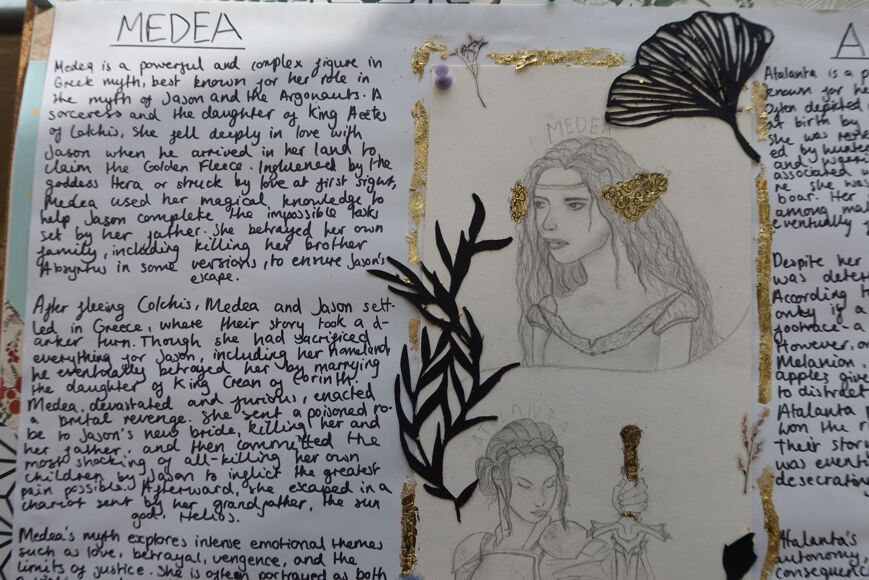 MEDEA
Medea is a powerful and complex figure in
Greek myth, best known for her role in
the myth of Jason and the Argonauts. A
sorceress and the daughter of King Aeetes
of Colchis, she fell deeply in love with
Jason when he arrived in her land to
claim the Golden Fleece. Influenced by the
goddess Hera or struck by love at first sight,
Medea used her magical knowledge to
help Jason complete the impossible tasks
set by her father. She betrayed her own
family, including killing her brother
Absyrtus in some versions, to ensure Jason's
escape.
After fleeing Colchis, Medea and Jason sett-
led in Greece, where their story took a d-
arker turn. Though she had sacrificed
everything for Jason, including her homeland,
he eventually betrayed her by marrying
the daughter of King Creon of Corinth.
Medea, devastated and furious, enacted
a brutal revenge. She sent a poisoned ro-
be to Jason's new bride, killing her and
her father, and then committed the
most shocking of all-killing her own
children by Jason to inflict the greatest
pain possible. Afterward, she escaped in a
chariot sent by her grandfather, the sun
god, Helios.
Medea's myth explores intense emotional themes
such as love, betrayal, vengence, and the
limits of justice. She is often portrayed as both
MEDEA
ATALANTA
A
Atalanta is a p
known for he
Often depicted
at birth by
she was
ed by hunte
and
associated w
re she was
boar. Her
among mal
eventually f
Despite her
was dete
According to
only if a
footrace-a
However, on
Melanion,
apples give
to distract
Atalanta
won the r
Their story
was eventu
desecratin
Atalanta's
autonomy,
consequenc